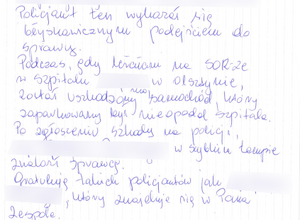 Policjant ten wykazał się
błyskawicznym podejściem do
sprawy.
Podczas, gdy leżałam na SOR-ze
w szpitalu w Olsztynie,
został uszkodzony samochód, który
zaparkowany był nieopodal szpitala.
Po zgłoszeniu szkody na policji,
w szybkim tempie
znalazł sprawcę.
Gratuluję takich policjantów jak
, który znajduje się w Pana
zespole.